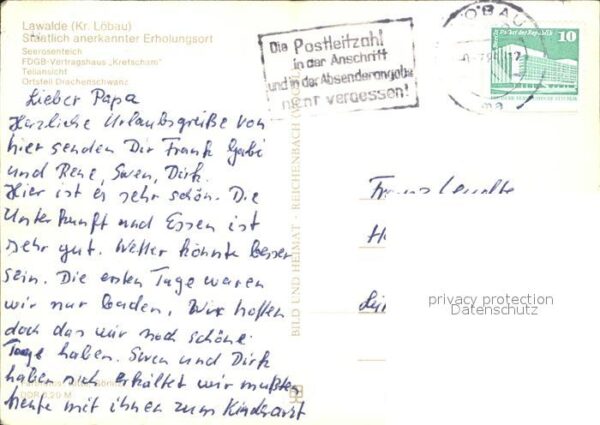 Lawalde (Kr. Löbau)
Staatlich anerkannter Erholungsort
Seerosenteich
FDGB-Vertragshaus „Kretscham"
Teilansicht
Ortsteil Drachenschwanz
Lieber Papa
Herzliche Urlaubsgrüße von
hier senden Dir Frank Gabi
und Rene, Swen, Dirk.
Hier ist es sehr schön. Die
Unterkunft und Essen ist
sehr gut. Wetter könnte besser
sein. Die ersten Tage waren
wir nur baden. Wir hoffen
doch das wir noch schöne
Tage haben. Swen und Dirk
haben sich erkältet wir mußten
heute mit ihnen zum Kinderarzt
DDR 0,20 M
BILD UND HEIMAT · REICHENBACH
Die Postleitzahl
in der Anschrift
und in der Absenderangabe
nicht vergessen!
LÖBAU
ma
Palast der Republik
10
Franz
privacy protection
Datenschutz